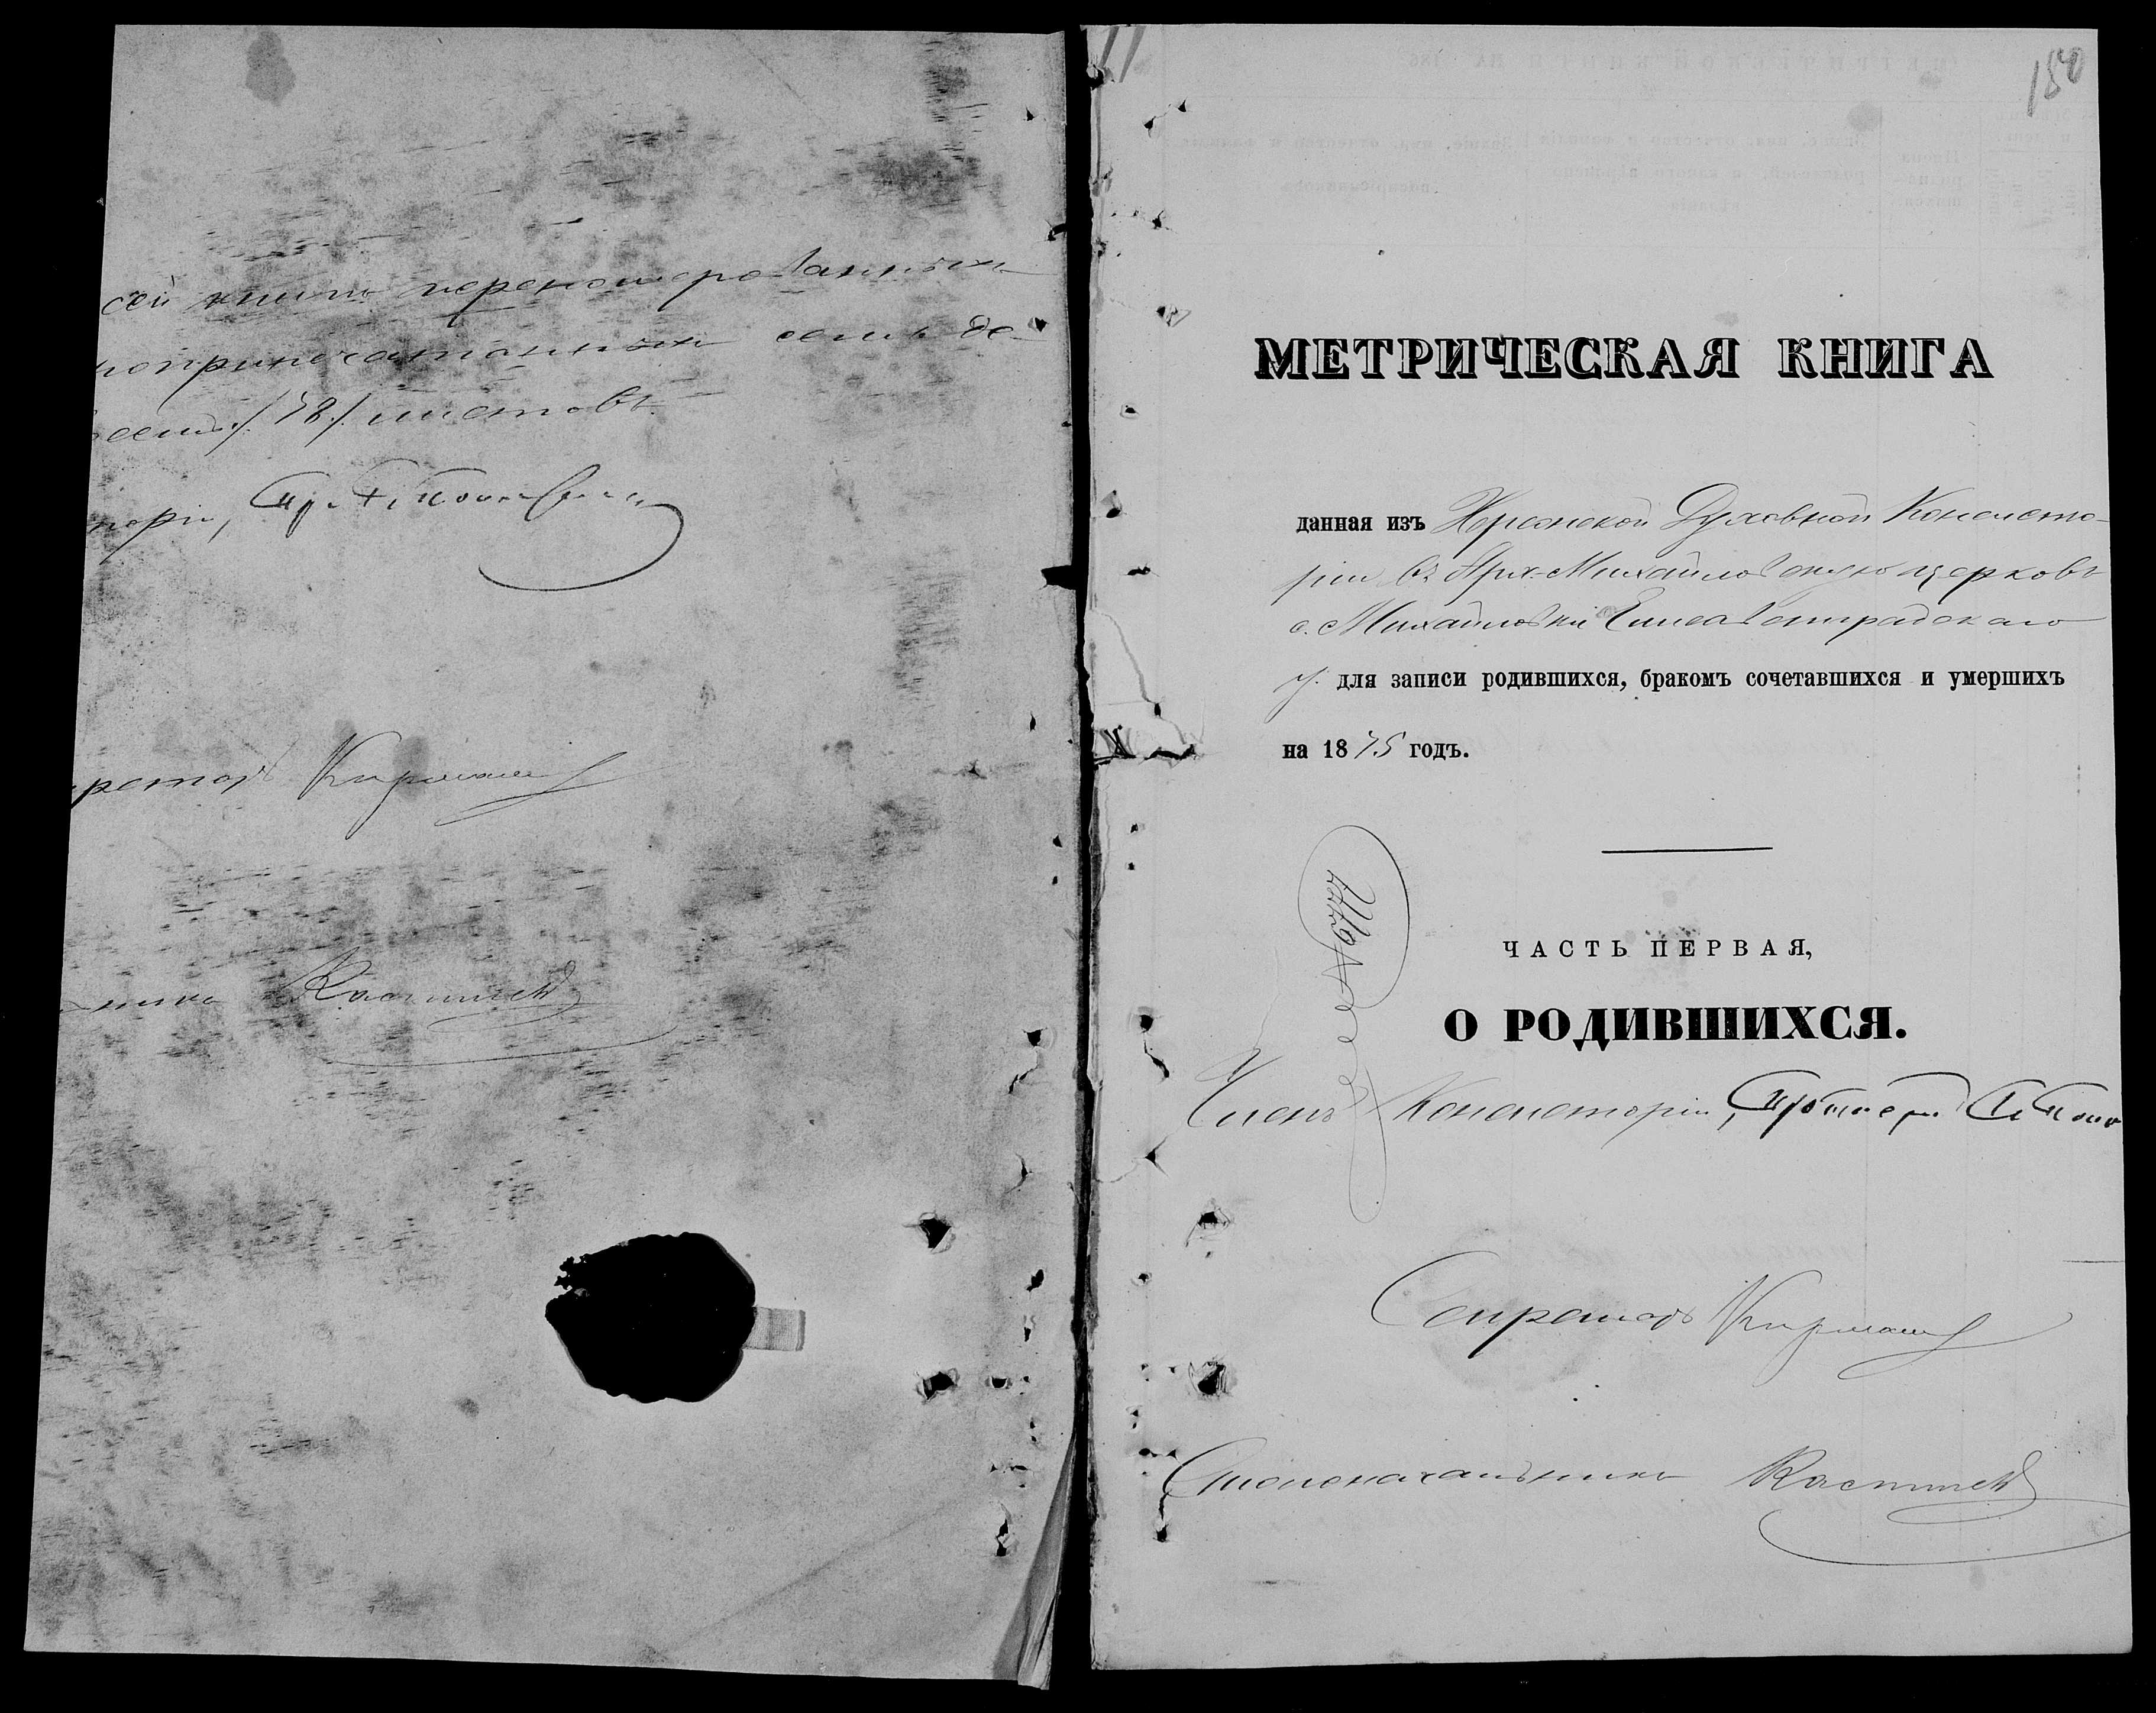 сей книги перенумерованныхъ
и припечатанныхъ семь де-
семь /78/ листовъ.
торіи, Прот.
кретарь Кирьяковъ
никъ
150
МЕТРИЧЕСКАЯ КНИГА
данная изъ Херсонской Духовной Консисто-
ріи въ Арх.-Михайловскую церковь
с. Михайловки Елисаветградскаго
у. для записи родившихся, бракомъ сочетавшихся и умершихъ
на 1875 годъ.
ЧАСТЬ ПЕРВАЯ,
О РОДИВШИХСЯ.
Членъ Консисторіи, Протоіерей
Секретарь
Столоначальникъ